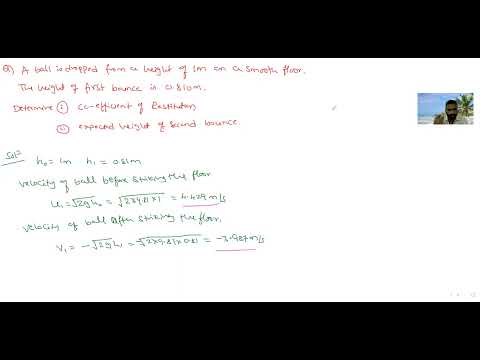 Q) A ball is dropped from a height of 1m on a smooth floor.
The height of first bounce is 0.810m.
Determine (i) co-efficient of Restitution
(ii) expected height of second bounce.
Sol:
h₀ = 1m h₁ = 0.81m
velocity of ball before striking the floor
u₁ = √2gh₀ = √2x9.81x1 = 4.429 m/s
velocity of ball after striking the floor.
v₁ = -√2gh₁ = -√2x9.81x0.81 = -3.987 m/s